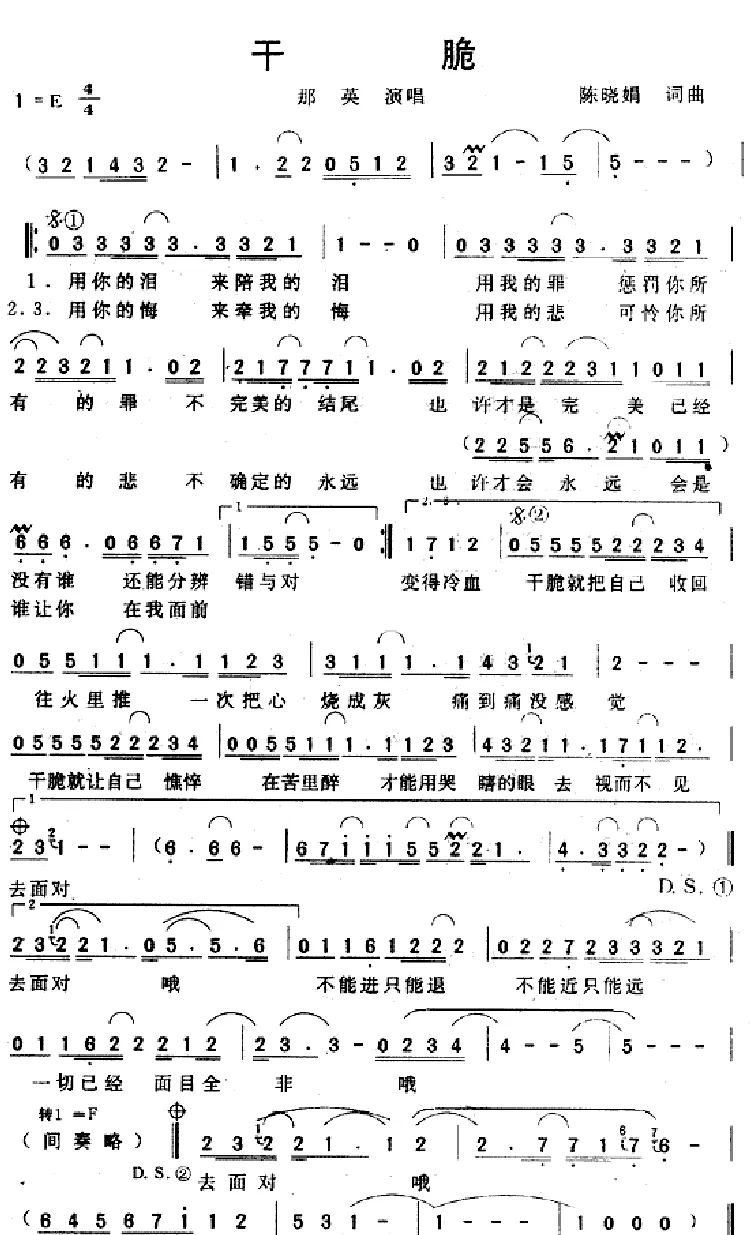 干 脆
1=E 4/4 那 英 演唱 陈晓娟 词曲
(3 2 1 4 3 2 - | 1 . 2 2 0 5 1 2 | 3 2 1 - 1 5 | 5 - - - )
𝄋① 0 3 3 3 3 3 . 3 3 2 1 | 1 - - 0 | 0 3 3 3 3 3 . 3 3 2 1 |
1. 用你的泪 来陪我的 泪 用我的罪 惩罚你所
2.3. 用你的悔 来牵我的 悔 用我的悲 可怜你所
2 2 3 2 1 1 . 0 2 | 2 1 7 7 7 7 1 1 . 0 2 | 2 1 2 2 2 3 1 1 0 1 1 |
有 的 罪 不 完美的 结尾 也 许才是 完 美 已经
(2 2 5 5 6 . 2 1 0 1 1)
有 的 悲 不 确定的 永远 也 许才会 永 远 会是
6 6 6 . 0 6 6 7 1 | 1. 1 5 5 5 - 0 :| 2.3. 1 7 1 2 | 𝄋② 0 5 5 5 5 5 2 2 2 3 4
没有谁 还能分辨 错与对 变得冷血 干脆就把自己 收回
谁让你 在我面前
0 5 5 1 1 1 . 1 1 2 3 | 3 1 1 1 . 1 4 3 2 1 | 2 - - - |
往火里推 一次把心 烧成灰 痛到痛没感 觉
0 5 5 5 5 5 2 2 2 3 4 | 0 0 5 5 1 1 1 . 1 1 2 3 | 4 3 2 1 1 . 1 7 1 1 2 . |
干脆就让自己 憔悴 在苦里醉 才能用哭 瞎的眼 去 视而不 见
1
2 3 1 - - | (6 . 6 6 - | 6 7 1 1 1 5 5 2 2 1 . | 4 . 3 3 2 2 - )
去面对 D.S.①
2
2 3 2 2 1 . 0 5 . 5 . 6 | 0 1 1 6 1 2 2 2 | 0 2 2 7 2 3 3 3 2 1 |
去面对 哦 不能进只能退 不能近只能远
0 1 1 6 2 2 2 1 2 | 2 3 . 3 - 0 2 3 4 | 4 - - 5 | 5 - - - |
一切已经 面目全 非 哦
转1=F
(间奏略) 2 3 2 2 1 . 1 2 | 2 . 7 7 1 7 6 - |
D.S.② 去面对 哦
(6 4 5 6 7 1 1 2 | 5 3 1 1 - | 1 - - - | 1 0 0 0)